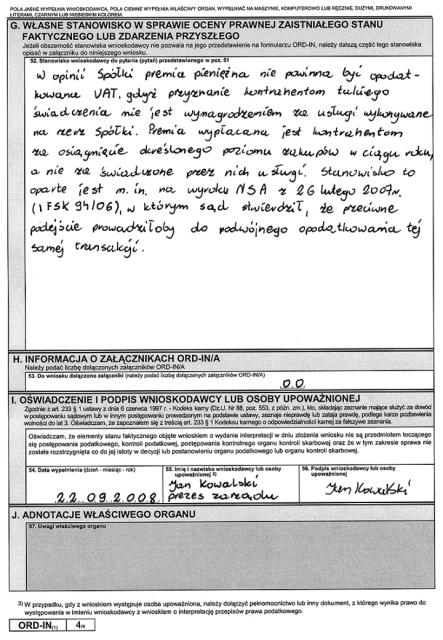 POLA JASNE WYPEŁNIA WNIOSKODAWCA, POLA CIEMNE WYPEŁNIA WŁAŚCIWY ORGAN. WYPEŁNIAĆ NA MASZYNIE, KOMPUTEROWO LUB RĘCZNIE, DUŻYMI, DRUKOWANYMI
LITERAMI, CZARNYM LUB NIEBIESKIM KOLOREM.
G. WŁASNE STANOWISKO W SPRAWIE OCENY PRAWNEJ ZAISTNIAŁEGO STANU
FAKTYCZNEGO LUB ZDARZENIA PRZYSZŁEGO
Jeżeli obszerność stanowiska wnioskodawcy nie pozwala na jego przedstawienie na formularzu ORD-IN, należy dalszą część tego stanowiska
opisać w załączniku do niniejszego wniosku.
52. Stanowisko wnioskodawcy do pytania (pytań) przedstawionego w poz. 51
W opinii Spółki premia pieniężna nie powinna być opodat-
kowana VAT, gdyż przyznanie kontrahentom takiego
świadczenia nie jest wynagrodzeniem za usługi wykonywane
na rzecz Spółki. Premia wypłacana jest kontrahentom
za osiągnięcie określonego poziomu zakupów w ciągu roku,
a nie za świadczone przez nich usługi. Stanowisko to
oparte jest m.in. na wyroku NSA z 26 lutego 2007r.
(I FSK 94/06), w którym sąd stwierdził, że przeciwne
podejście prowadziłoby do podwójnego opodatkowania tej
samej transakcji.
H. INFORMACJA O ZAŁĄCZNIKACH ORD-IN/A
Należy podać liczbę dołączonych załączników ORD-IN/A
53. Do wniosku dołączono (należy podać liczbę dołączonych załączników ORD-IN/A)
0 0
I. OŚWIADCZENIE I PODPIS WNIOSKODAWCY LUB OSOBY UPOWAŻNIONEJ
Zgodnie z art. 233 § 1 ustawy z dnia 6 czerwca 1997 r. - Kodeks karny (Dz.U. Nr 88, poz. 553, z późn. zm.), kto, składając zeznanie mające służyć za dowód
w postępowaniu sądowym lub w innym postępowaniu prowadzonym na podstawie ustawy, zeznaje nieprawdę lub zataja prawdę, podlega karze pozbawienia
wolności do lat 3. Oświadczam, że zapoznałem się z treścią art. 233 § 1 Kodeksu karnego o odpowiedzialności karnej za fałszywe zeznania.
Oświadczam, że elementy stanu faktycznego objęte wnioskiem o wydanie interpretacji w dniu złożenia wniosku nie są przedmiotem toczącego
się postępowania podatkowego, kontroli podatkowej, postępowania kontrolnego organu kontroli skarbowej oraz że w tym zakresie sprawa nie
została rozstrzygnięta co do jej istoty w decyzji lub postanowieniu organu podatkowego lub organu kontroli skarbowej.
54. Data wypełnienia (dzień - miesiąc - rok)
22 09 2008
55. Imię i nazwisko wnioskodawcy lub osoby
upoważnionej 3)
Jan Kowalski
prezes zarządu
56. Podpis wnioskodawcy lub osoby
upoważnionej
Jan Kowalski
J. ADNOTACJE WŁAŚCIWEGO ORGANU
57. Uwagi właściwego organu
3) W przypadku, gdy z wnioskiem występuje osoba upoważniona, należy dołączyć pełnomocnictwo lub inny dokument, z którego wynika prawo do
występowania w imieniu wnioskodawcy z wnioskiem o interpretację przepisów prawa podatkowego.
ORD-IN(1) 4/4